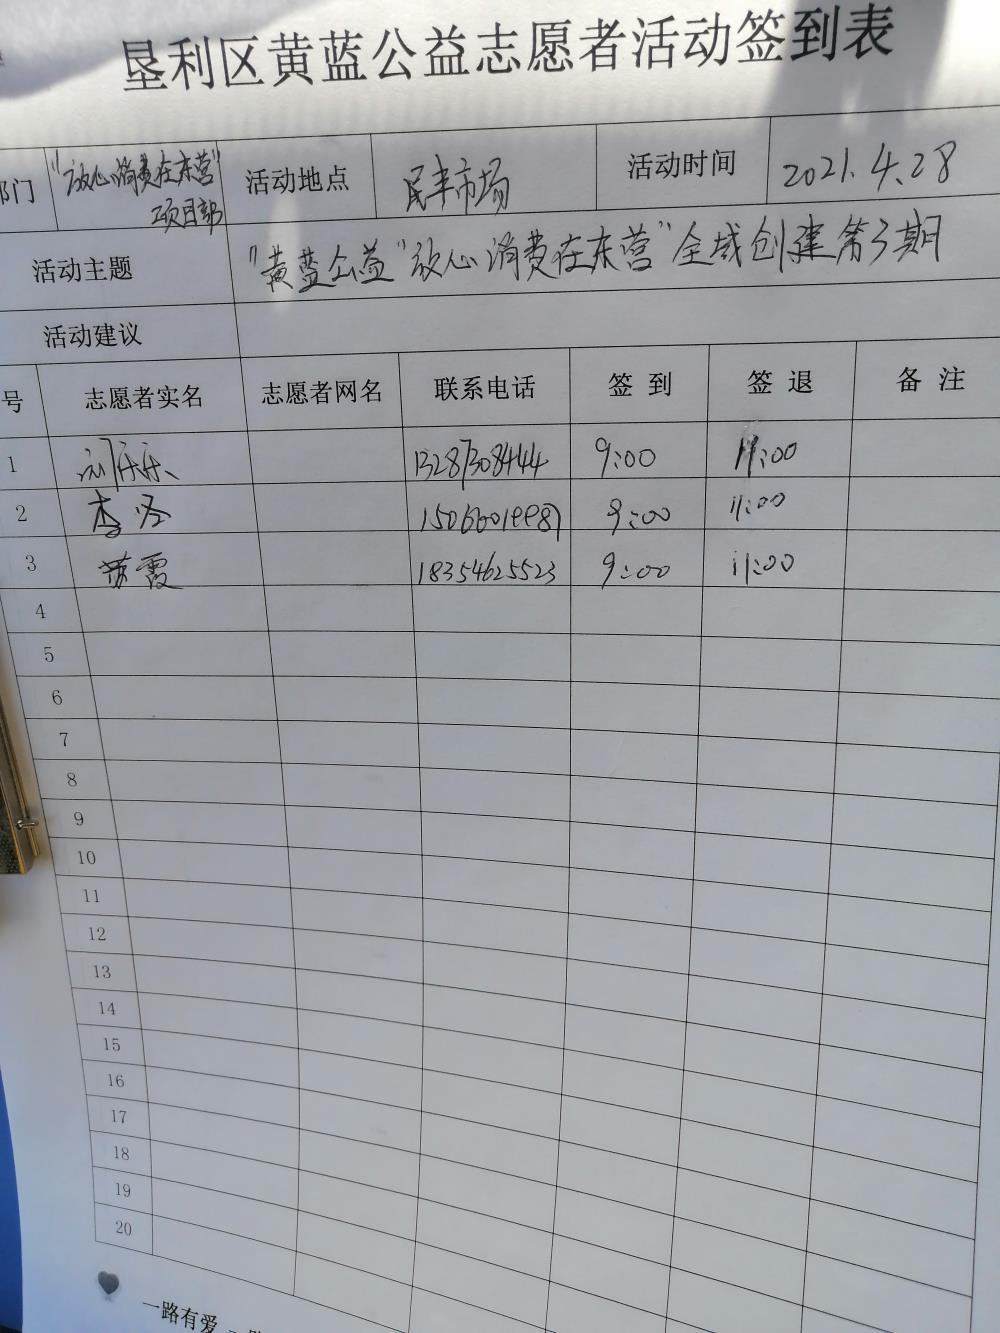 垦利区黄蓝公益志愿者活动签到表
部门 "放心消费在东营"项目部 活动地点 民丰市场 活动时间 2021.4.28
活动主题 "黄蓝公益"放心消费在东营"全域创建第3期
活动建议
号 志愿者实名 志愿者网名 联系电话 签 到 签 退 备 注
1 乐乐 13287308444 9:00 11:00
2 李 9:00 11:00
3 苏霞 18354625523 9:00 11:00
4
5
6
7
8
9
10
11
12
13
14
15
16
17
18
19
20
一路有爱